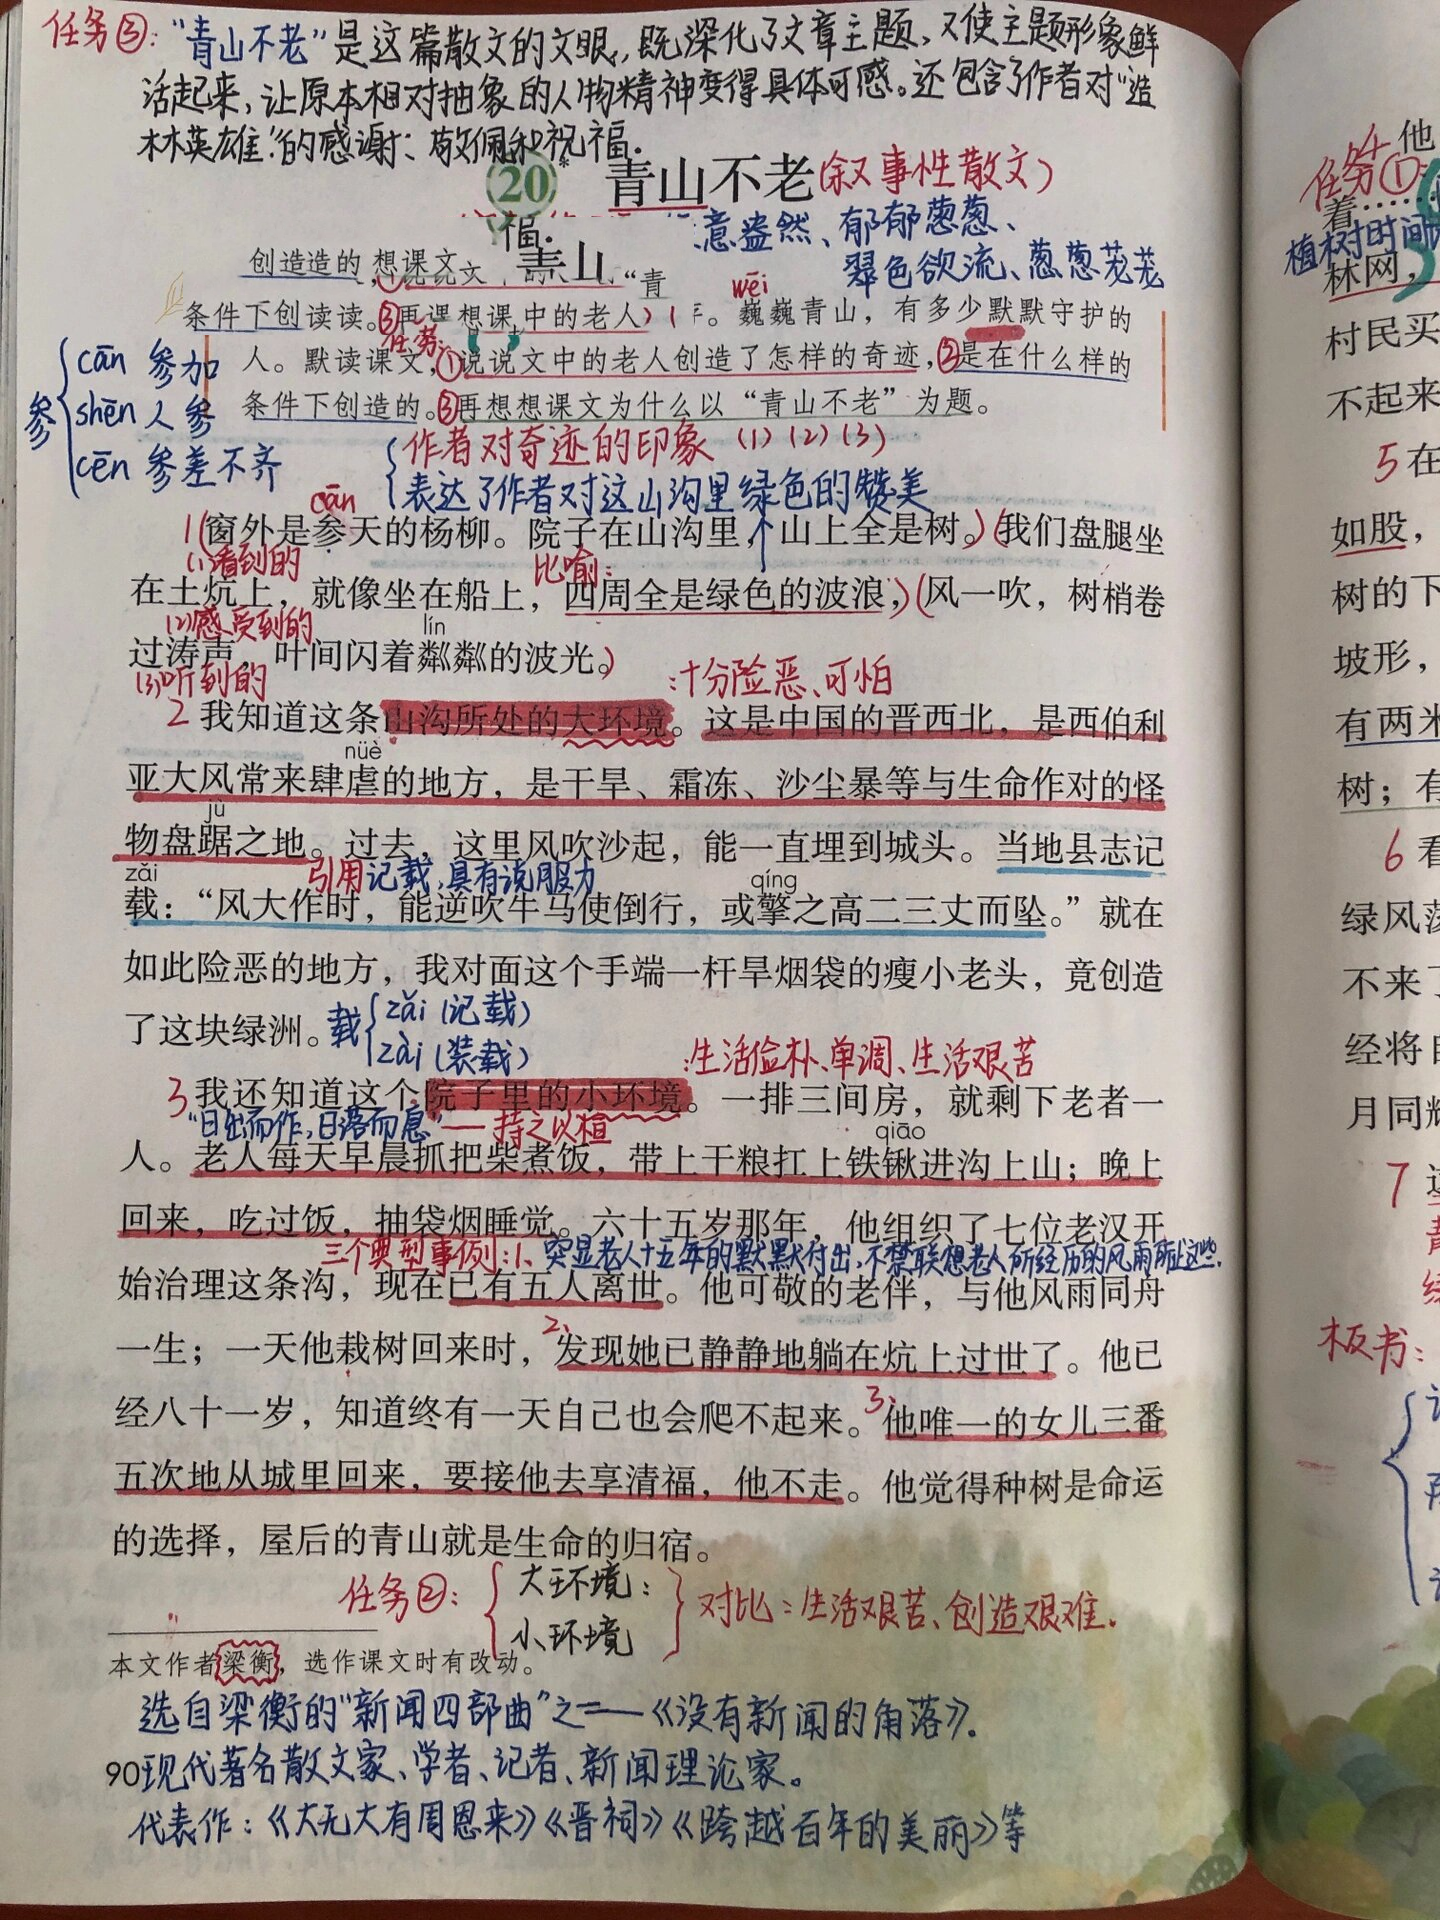 任务③:“青山不老”是这篇散文的文眼,既深化了文章主题,又使主题形象鲜
活起来,让原本相对抽象的人物精神变得具体可感。还包含了作者对“造
林英雄”的感谢、敬佩和祝福.
20* 青山不老(叙事性散文)
福. 意盎然、郁郁葱葱、
青山 翠色欲流、葱葱茏茏
创造造的 想课文 ,①说说文 “青 wēi
条件下创读读。③再 想课 中的老人 年。巍巍青山,有多少默默守护的
任务:
人。默读课文,①说说文中的老人创造了怎样的奇迹,②是在什么样的
条件下创造的。③再想想课文为什么以“青山不老”为题。
参
cān 参加
shēn 人参
cēn 参差不齐
作者对奇迹的印象 (1)(2)(3)
表达了作者对这山沟里绿色的赞美
cān
1(窗外是参天的杨柳。院子在山沟里,山上全是树。)(我们盘腿坐
(1)看到的 比喻:
在土炕上,就像坐在船上,四周全是绿色的波浪,)(风一吹,树梢卷
(2)感受到的 lín
过涛声,叶间闪着粼粼的波光。)
(3)听到的 :十分险恶、可怕
2 我知道这条山沟所处的大环境。这是中国的晋西北,是西伯利
nüè
亚大风常来肆虐的地方,是干旱、霜冻、沙尘暴等与生命作对的怪
jù
物盘踞之地。过去,这里风吹沙起,能一直埋到城头。当地县志记
zǎi 引用记载,具有说服力 qíng
载:“风大作时,能逆吹牛马使倒行,或擎之高二三丈而坠。”就在
如此险恶的地方,我对面这个手端一杆旱烟袋的瘦小老头,竟创造
了这块绿洲。载
zǎi (记载)
zài (装载)
:生活俭朴、单调、生活艰苦
3 我还知道这个院子里的小环境。一排三间房,就剩下老者一
“日出而作,日落而息”——持之以恒 qiāo
人。老人每天早晨抓把柴煮饭,带上干粮扛上铁锹进沟上山;晚上
回来,吃过饭,抽袋烟睡觉。六十五岁那年,他组织了七位老汉开
三个典型事例:1、突显老人十五年的默默付出,不禁联想老人所经历的风雨
始治理这条沟,现在已有五人离世。他可敬的老伴,与他风雨同舟
2、
一生;一天他栽树回来时,发现她已静静地躺在炕上过世了。他已
3、
经八十一岁,知道终有一天自己也会爬不起来。他唯一的女儿三番
五次地从城里回来,要接他去享清福,他不走。他觉得种树是命运
的选择,屋后的青山就是生命的归宿。
任务②:
大环境:
小环境
对比:生活艰苦、创造艰难.
本文作者梁衡,选作课文时有改动。
选自梁衡的“新闻四部曲”之一——《没有新闻的角落》.
90现代著名散文家、学者、记者、新闻理论家。
代表作:《大无大有周恩来》《晋祠》《跨越百年的美丽》等
他
任务①
着……
植树时间
林网,
村民买
不起来
5 在
如股,
树的下
坡形,
有两米
树;有
6 看
绿风荡
不来了
经将自
月同辉
7 这
青
绿
板书: